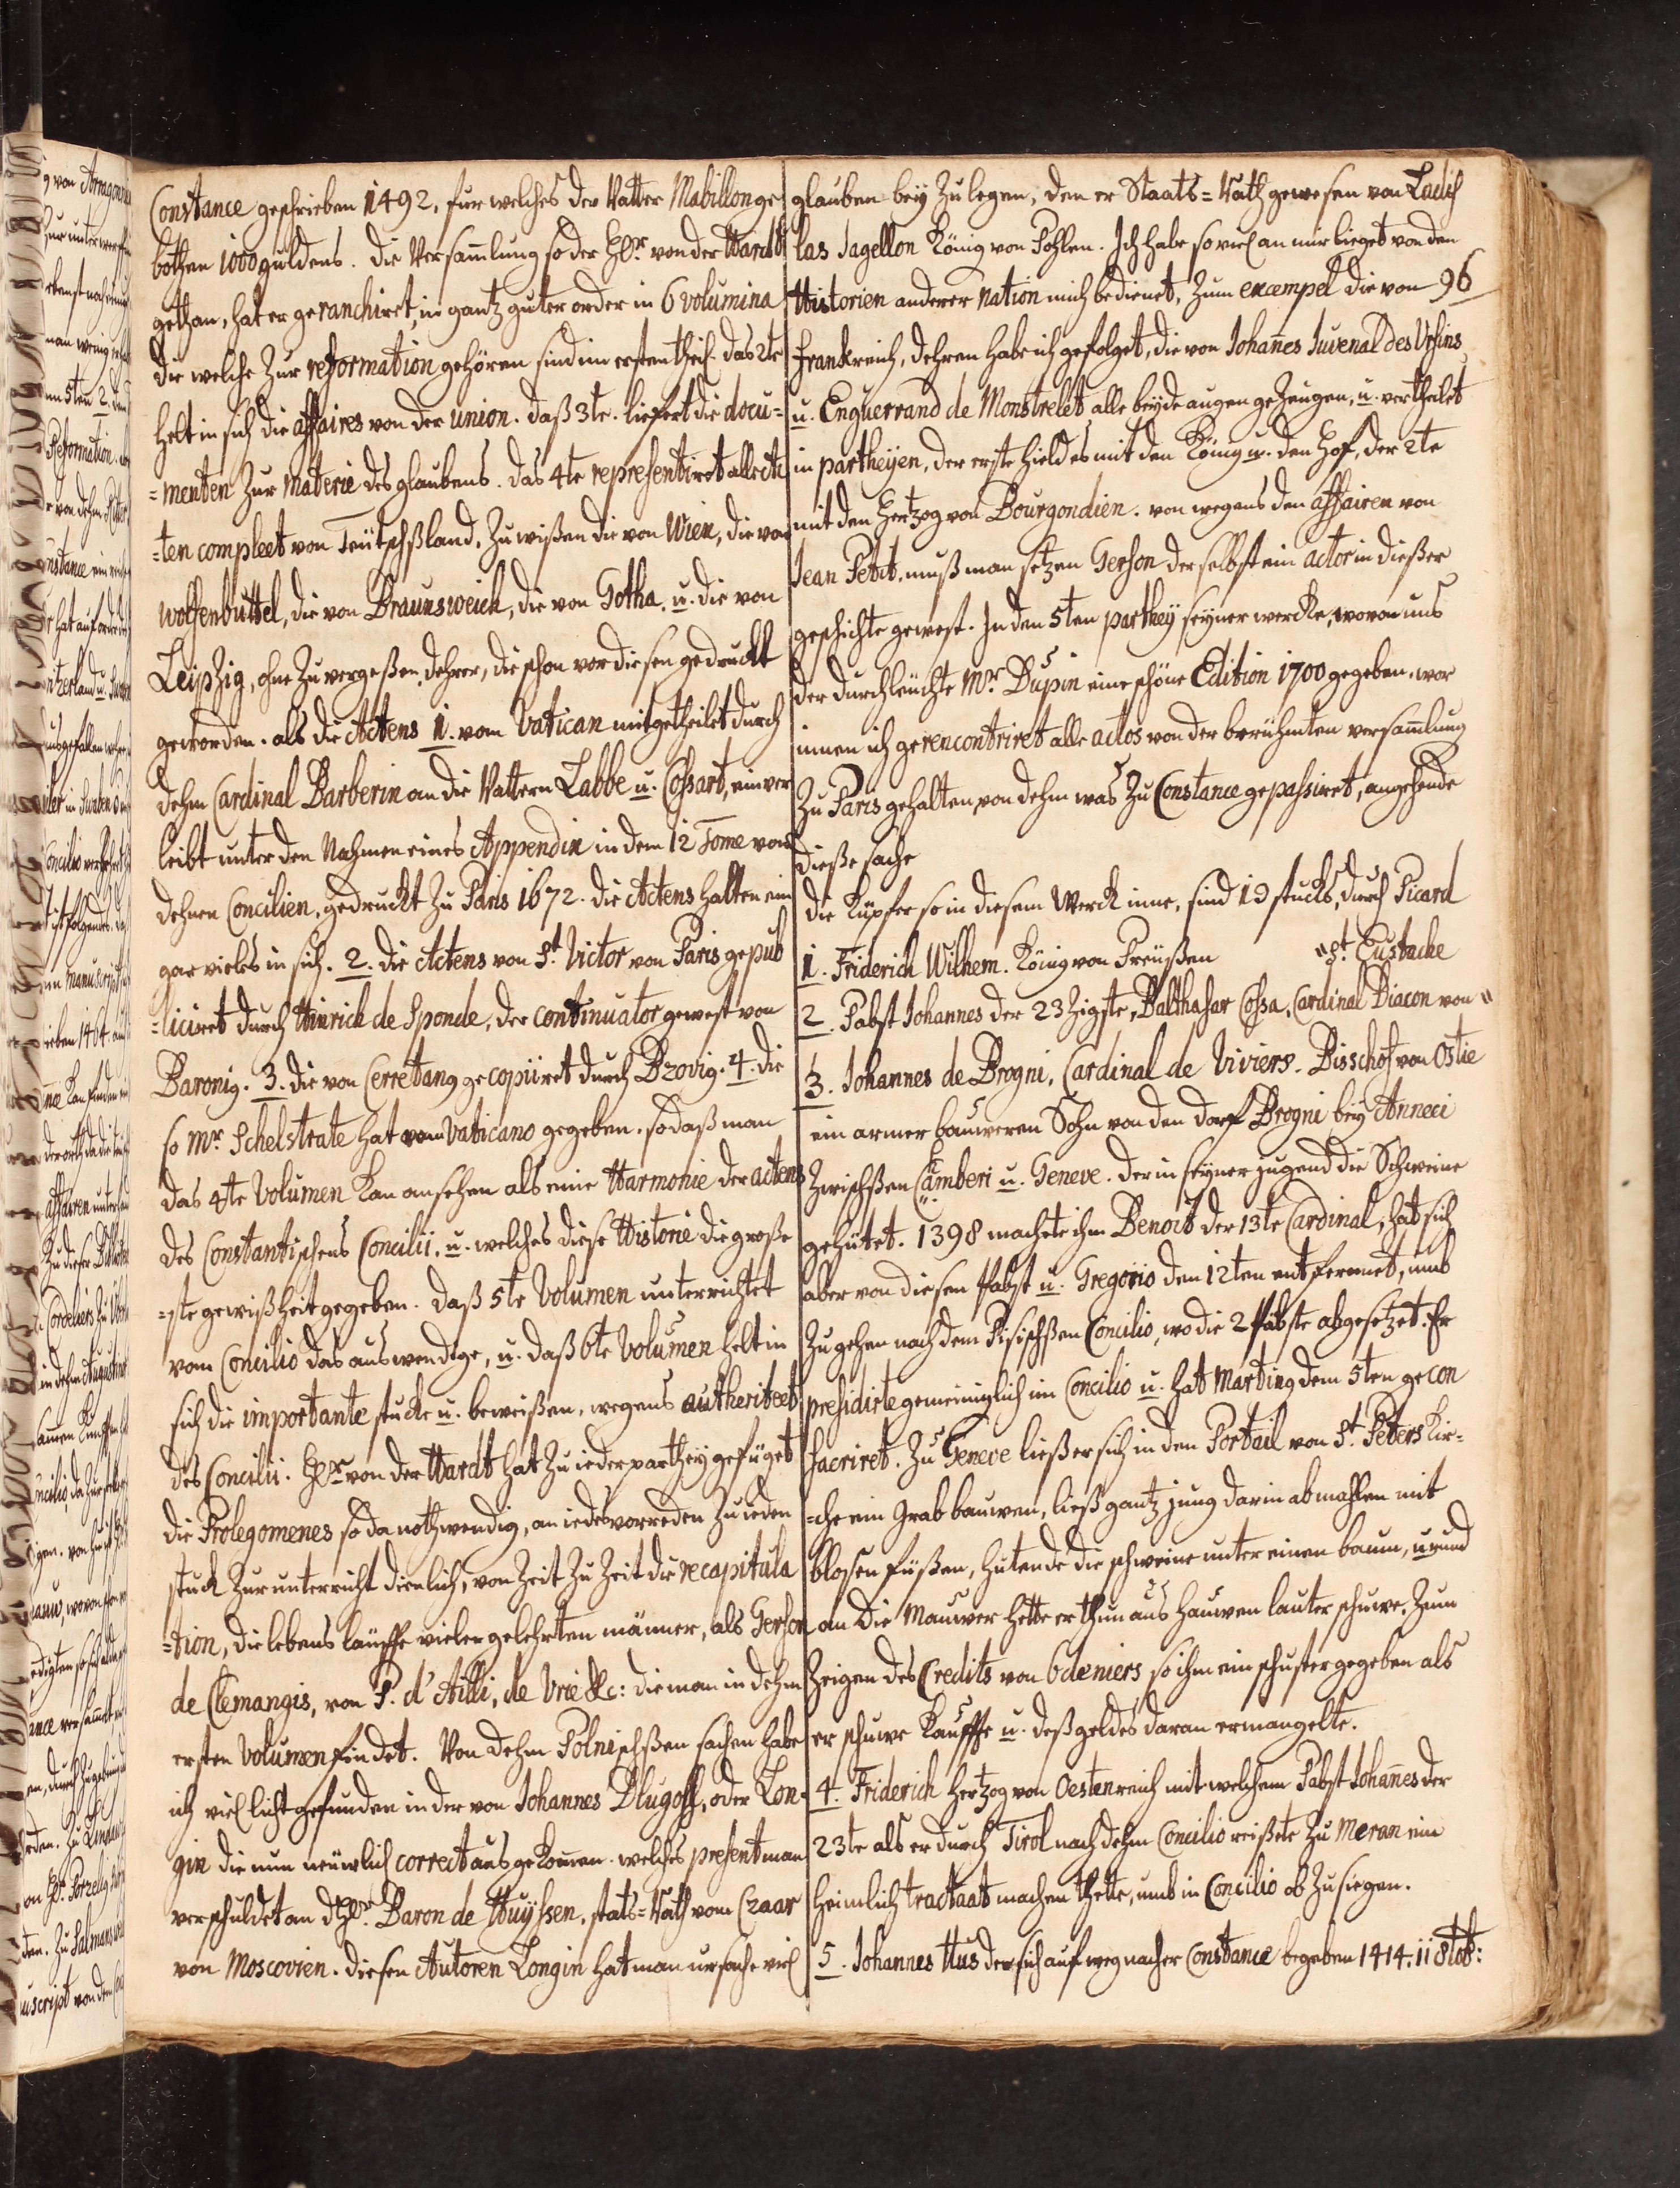 Constance geschrieben 1492, fur welches der Vatter Mabillon ge
bothen 1000 guldens. die Versam̄lung so der Hr. von der Hardt
gethan, hat er geranchiret, in gantz guter order in 6 volumina
die welche Zur reformation gehören sind im ersten theil. das 2te
helt in sich die affaires von der union. daß 3te. liefert die docu=
=menten Zur materie des glaubens. das 4te representiret alle Ac
=ten compleet von Teütschsland, Zu wißen die von Wien, die von
wolfenbuttel, die von Braunsweich, die von Gotha, u. die von
Leipzig, ohne Zu vergeßen, dehrer, die schon vor diesen gedruckt
geworden. als die Actens 1. vom Vatican mitgetheilet durch
dehm Cardinal Barberin an die Vattern Labbe u. Cossart, ein ver
leibt unter den Nahmen eines Appendix in dem 12 Tome von
dehnen Concilien, gedruckt Zu Paris 1672. die Actens halten ein
gar vieles in sich. 2. die Actens von St. Victor von Paris gepub
=liciret durch Hinrich de Sponde, der continuator gewest von
Baronig. 3. die von Cerretang gecopiiret durch Bzovig. 4. die
so Mr. Schelstrate hat vom Vaticano gegeben. so daß man
das 4te Volumen kan ansehen als eine Harmonie der actens
des Constantischens Concilii, u. welches diese Historie die große
=ste gewißheit gegeben. daß 5te Volumen unterrichtet
vom Concilio das auswendige, u. daß 6te Volumen helt in
sich die importante stucke u. beweißen, wegens autheriteet
des Concilii. Hr. von der Hardt hat Zu ieder parthey gefüget
die Prolegomenes so da nothwendig, an iedes vorreden Zu ieden
stuck Zur unterricht dienlich, von Zeit Zu Zeit die recapitula
=tion, die lebens läuffe vieler gelehrten männer, als Gerson
de Clemangis, von P. d'Ailli, de Vrie &c: die man in dehm
ersten Volumen findet. Von dehm Polnischßen sachen habe
ich viel licht gefunden in der von Johannes Dlugoss, oder Lon-
gin die nun neüwlich correct aus gekom̄en. welches present man
verschuldet an dHr. Baron de Huyssen, stats=Rath vom Czaar
von Moscovien. diesen Autoren Longin hat man ursache viel
glauben bey Zu legen, den er Staats=Rath gewesen von Ladis
las Jagellon König von Pohlen. Ich habe so viel an mir lieget von den
Historien anderer nation mich bedienet, Zum exempel die von 96
Franckreich, dehren habe ich gefolget, die von Johan̄es Juvenal des Ursins
u. Enguerrand de Monstrelet alle beyde augen geZeugen, u. vertheilet
in partheyen, der erste hield es mit den König u. den Hof, der 2te
mit den Hertzog von Bourgondien. von wegens den affairen von
Jean Petit, muß man setzen Gerson der selbst ein actor in dießer
geschichte gewest. In den 5ten parthey seyner wercke, wovon uns
der durchleuchte Mr. Dupin eine schöne Edition 1700 gegeben, wor
innen ich gerencontriret alle actos von der berühmten versam̄lung
Zu Paris gehalten, von dehm was Zu Constance gepassiret, angehende
dieße sache
die Kupfer so in diesem Werck inne, sind 19 stucks, durch Picard
1. Friderich Wilhem. König von Preüßen "St. Eustache
2. Pabst Johannes der 23Zigste, Balthasar Cossa, Cardinal Diacon von "
3. Johannes de Brogni, Cardinal de Viviers. Bisschof von Ostie
ein armer bauweren Sohn von den dorf Brogni bey Anneci
Zwischßen Cämberi u. Geneve. der in seyner jugend die Schweine
gehütet. 1398 machete ihm Benoit der 13te Cardinal, hat sich
aber von diesen Pabst u. Gregorio den 12ten entfernnet, umb
Zu gehen nach dem Pisischßen Concilio, wo die 2 Päbste abgesetzet. Er
presidirte gemeiniglich im Concilio u. hat Marting dem 5ten gecon
sacriret. Zu Geneve ließ er sich in den Portail von St. Peters Kir=
=che ein grab bauwen, ließ gantz jung darin abmahlen mit
blosen füßen, hutende die schweine unter einen baum, u rund
an die Mauwer hette er thun aus hauwen lauter schuwe, Zum
Zeigen des Credits von 6 deniers so ihm ein schuster gegeben als
er schuwe kauffte u. deß geldes daran ermangelte.
4. Friderich Hertzog von Oestenreich mit welchem Pabst Johan̄es der
23te als er durch Tirol nach dehm Concilio reißete Zu Meran ein
heimlich tractaat machen thette, umb in Concilio ob Zu siegen.
5. Johannes Hus der sich auf weg nacher Constance begeben 1414. 11 8tob: